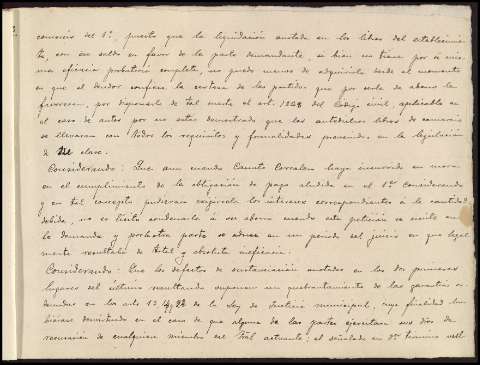 comercio del 1º, puesto que la liquidación anotada en los libros del establecimien-
to, con un saldo en favor de la parte demandante, si bien no tiene por si mis-
ma eficacia probatoria completa, no puede menos de adquirirla desde el momento
en que el deudor confiesa la certeza de las partidas que por serle de abono le
favorecen, por disponerlo de tal suerte el art. 1228 del Codigo civil, aplicable en
el caso de autos por no estar demostrado que los antedichos libros de comercio
se llevaran con todos los requisitos y formalidades prevenidos en la legislación
de su clase.
Considerando: Que aun cuando Camilo Corrales haya incurrido en mora
en el cumplimiento de la obligación de pago aludida en el 1º Considerando
y en tal concepto pudieran exigirsele los intereses correspondientes á la cantidad
debida, no es licito condenarle á su abono cuando esta petición se omite en
la demanda y por la otra parte se aduce en un periodo del juicio en que legal-
mente resultaba de total y absoluta ineficacia.
Considerando: Que los defectos de sustanciación anotados en los dos primeros
lugares del último resultando suponen un quebrantamiento de las garantias or-
denadas en los arts 12 y 22 de la Ley de Justicia municipal, cuya finalidad hu-
biérase desvirtuado en el caso de que alguna de las partes ejercitara sus dros. de
recusación de cualquier miembro del Tral actuante; el señalado en 3er termino